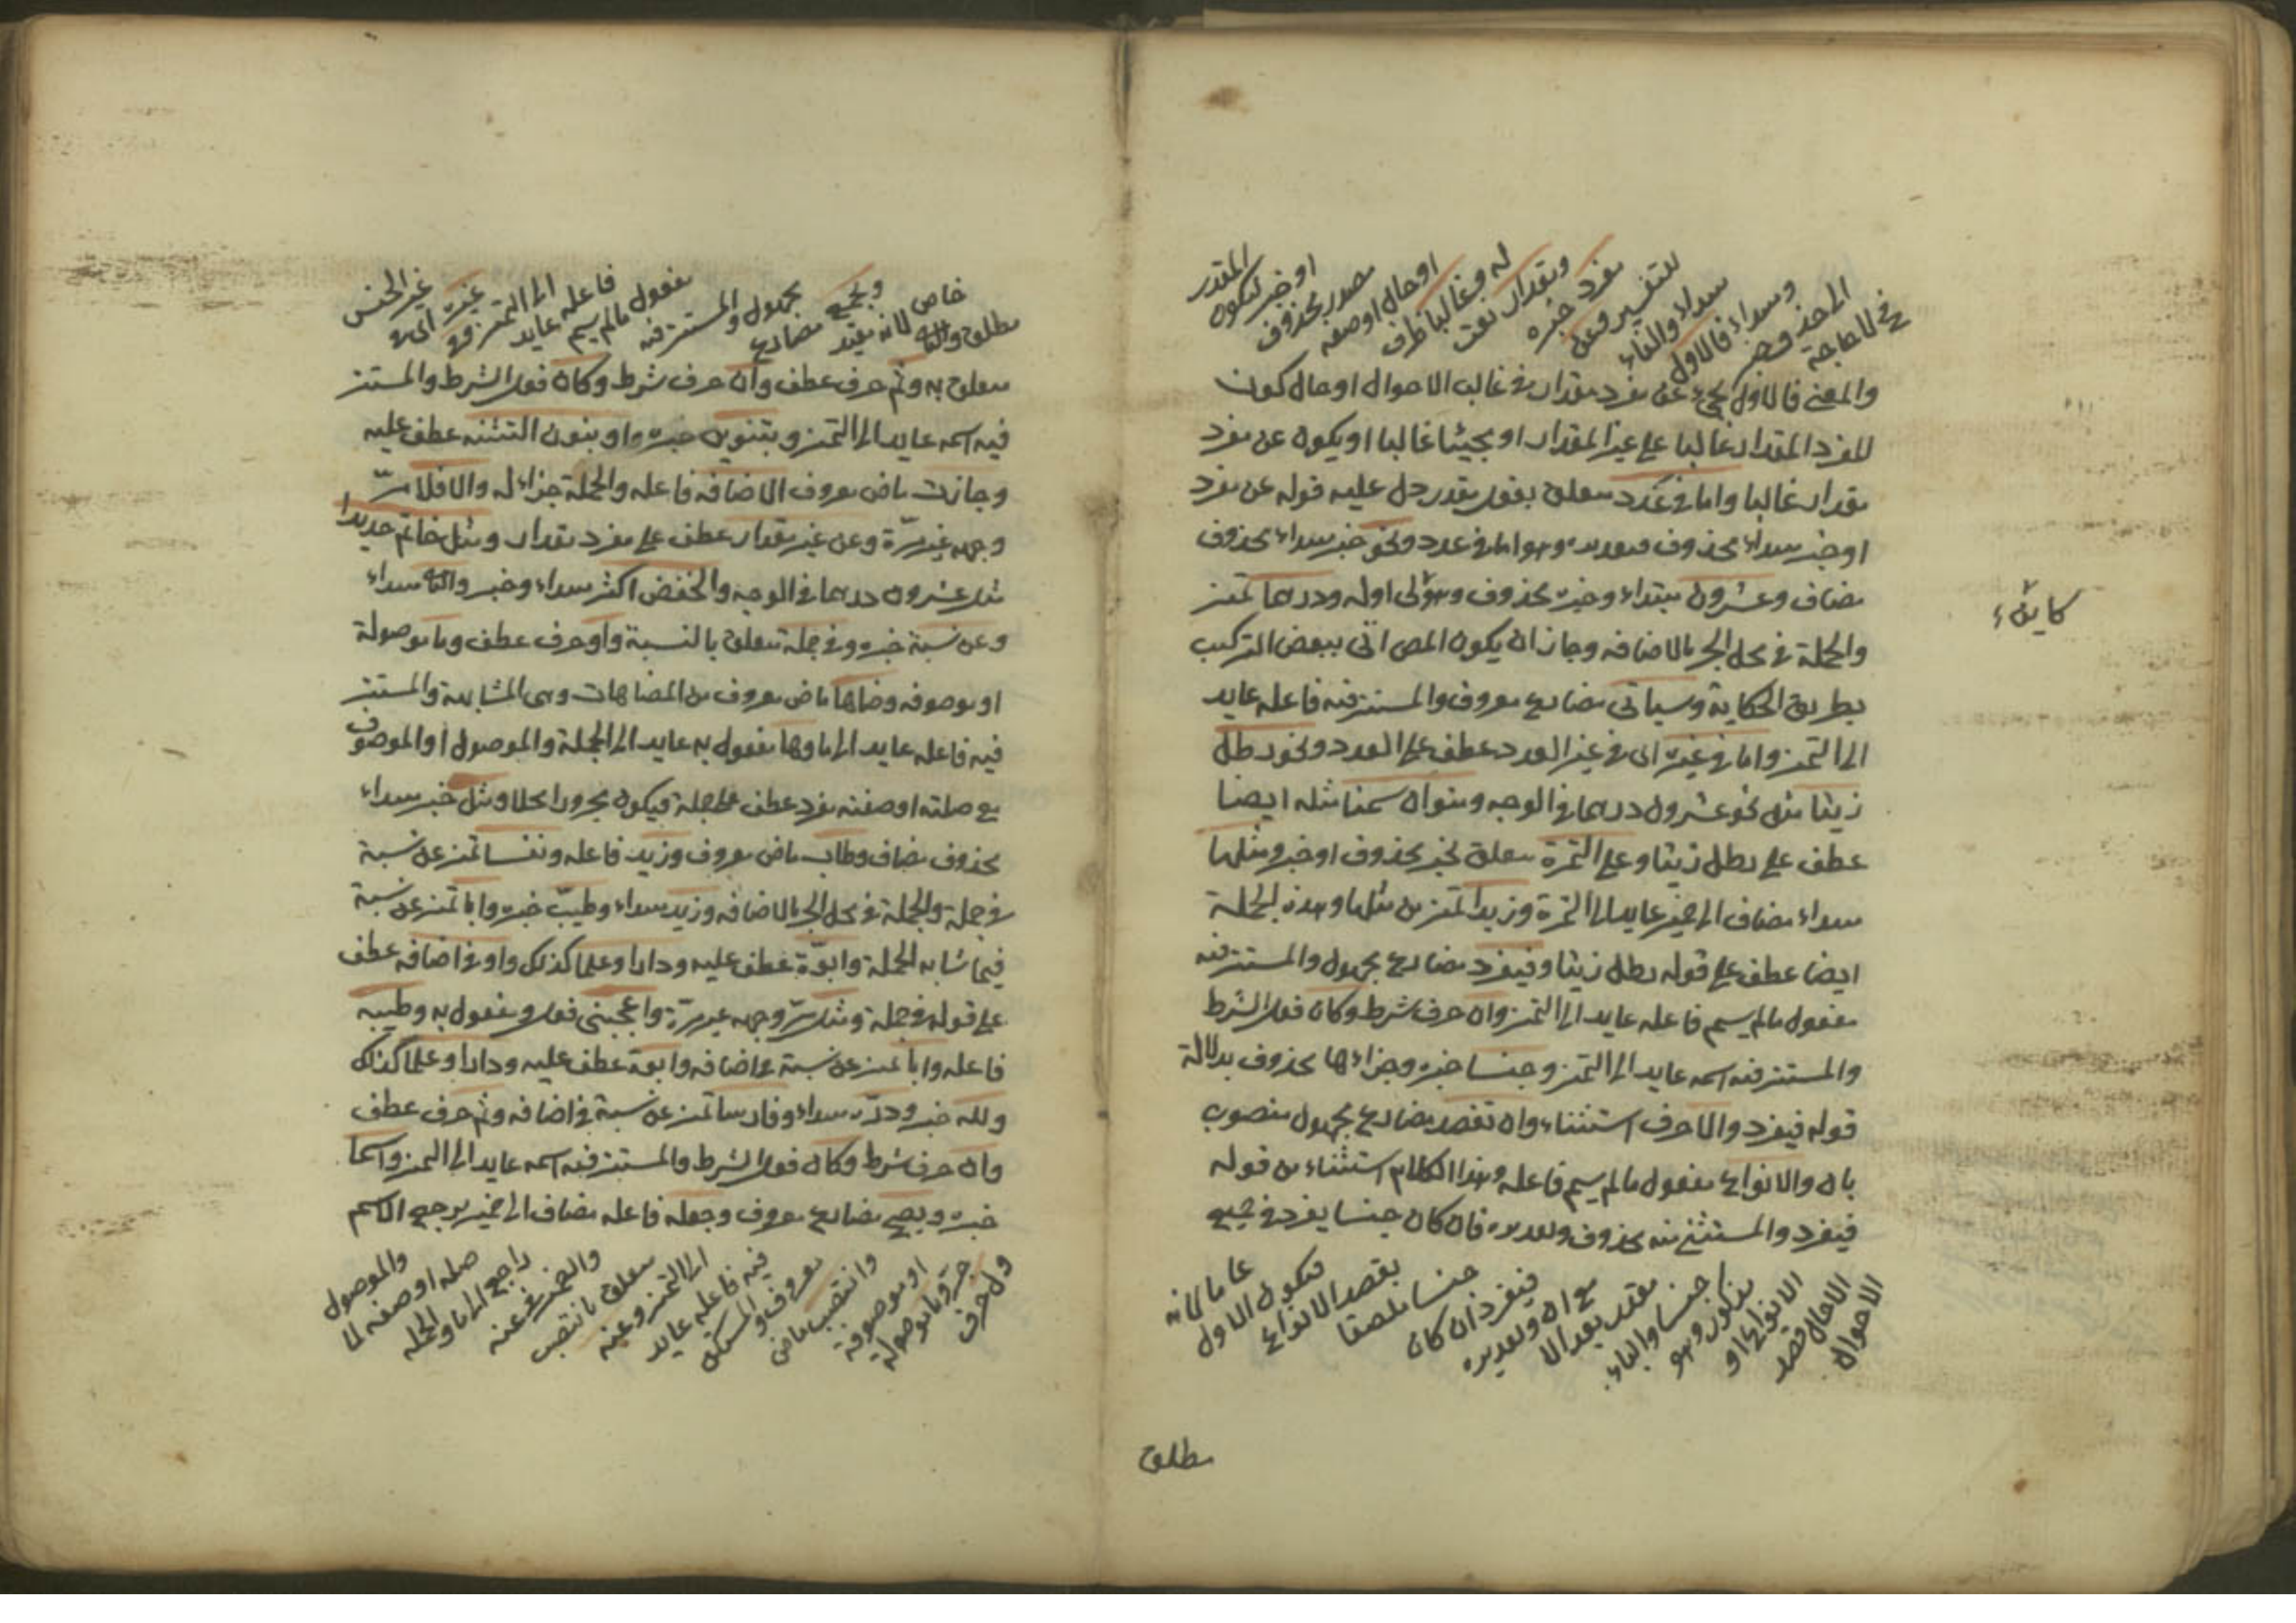 في للحاجة
الى حذف وخبر
ومبتداء فالاول
مبتداء والفاء
للتفسير وعن
مفرد خبره
ومقدار نعت
له وغالبا ظرف
او حال او صفة
مصدر محذوف
او خبر ليكون
المقدر
والمعنى فالاول يجيء عن مفرد مقدار في غالب الاحوال او حال كون
المفرد المقدار غالبا على غير المقدار او مجيئا غالبا او يكون عن مفرد
مقدار غالبا واما في عدد متعلق بفعل مقدر دل عليه قوله عن مفرد
او خبر مبتداء محذوف وتقديره وهو اما في عدد ونحو خبر مبتداء محذوف
مضاف وعشرون مبتداء وخبره محذوف وهو لى اوله ودرهما تميز
والجملة في محل الجر بالاضافه وجاز ان يكون المص اتى ببعض التركيب
بطريق الحكاية وسياتى مضارع معروف والمستتر فيه فاعله عايد
الى التميز واما في غيره اى في غير العدد عطف على العدد ونحو رطل
زيتا مثل نحو عشرون درهما في الوجه ومنوان سمنا مثله ايضا
عطف على رطل زيتا وعلى التمرة متعلق بخبر محذوف او خبر ومثلها
مبتداء مضاف الى ضمير عايد الى التمرة وزبدا تميز من مثلها وهذه الجملة
ايضا عطف على قوله رطل زيتا وفيفرد مضارع مجهول والمستتر فيه
مفعول مالم يسم فاعله عايد الى التميز وان حرف شرط وكان فعل الشرط
والمستتر فيه اسمه عايد الى التميز وجنسا خبره وجزاءها محذوف بدلالة
قوله فيفرد والا حرف استثناء وان تقصد مضارع مجهول منصوب
بان والانواع مفعول مالم يسم فاعله وهذا الكلام استثناء من قوله
فيفرد والمستثنى منه محذوف وتقديره فان كان جنسا يفرد في جميع
الاحوال
الا حال قصد
الانواع او
مذكور وهو
جنسا والباء
مقدر بعد الا
مع ان وتقديره
فيفرد ان كان
جنسا ملصقا
بقصد الانواع
فيكون الاول
عاما لانه
كايىء
مطلق
مطلق والثانى
خاص لانه مقيد
ويجمع مضارع
مجهول والمستتر فيه
مفعول مالم يسم
فاعله عايد
الى التميز وفى
غيره اى في
غير الجنس
متعلق به وثم حرف عطف وان حرف شرط وكان فعل الشرط والمستتر
فيه اسمه عايد الى التميز وبتنوين خبره واو بنون التثنيه عطف عليه
وجازت ماض معروف الاضافه فاعله والجملة جزاء له والا فلا مرّ
وجهه غير مرّة وعن غير مقدار عطف على مفرد مقدار ومثل خاتم حديدا
مثل عشرون درهما في الوجه والخفض اكثر مبتداء وخبر والثانى مبتداء
وعن نسبة خبره وفى جملة متعلق بالنسبة واو حرف عطف وما موصولة
او موصوفه وضاهاها ماض معروف من المضاهات وهى المشابهة والمستتر
فيه فاعله عايد الى ما وها مفعول به عايد الى الجملة والموصول او الموصوف
مع صلته او صفته مفرد عطف على جملة فيكون مجرورا محلا ومثل خبر مبتداء
محذوف مضاف وطاب ماض معروف وزيد فاعله ونفسا تميز عن نسبة
في جملة والجملة في محل الجر بالاضافه وزيد مبتداء وطيّب خبره وابا تميز عن نسبة
فيما شابه الجملة وابوّة عطف عليه ودارا وعلما كذلك واو في اضافه عطف
على قوله في جملة ومثل مرّ وجهه غير مرّة واعجبنى فعل ومفعول به وطيبه
فاعله وابا تميز عن نسبة في اضافه وابوة عطف عليه ودارا وعلما كذلك
ولله خبر ودرّه مبتداء وفارسا تميز عن نسبة في اضافه وثم حرف عطف
وان حرف شرط وكان فعل الشرط والمستتر فيه اسمه عايد الى التميز واسما
خبره ويصح مضارع معروف وجعله فاعله مضاف الى ضمير يرجع الى الاسم
ول حرف
جر وما موصولة
او موصوفة
وانتصب ماض
معروف والمستكن
فيه فاعله عايد
الى التميز وعنه
متعلق بانتصب
والضمير في عنه
راجع الى ما والجملة
صلة او صفة لما
والموصول